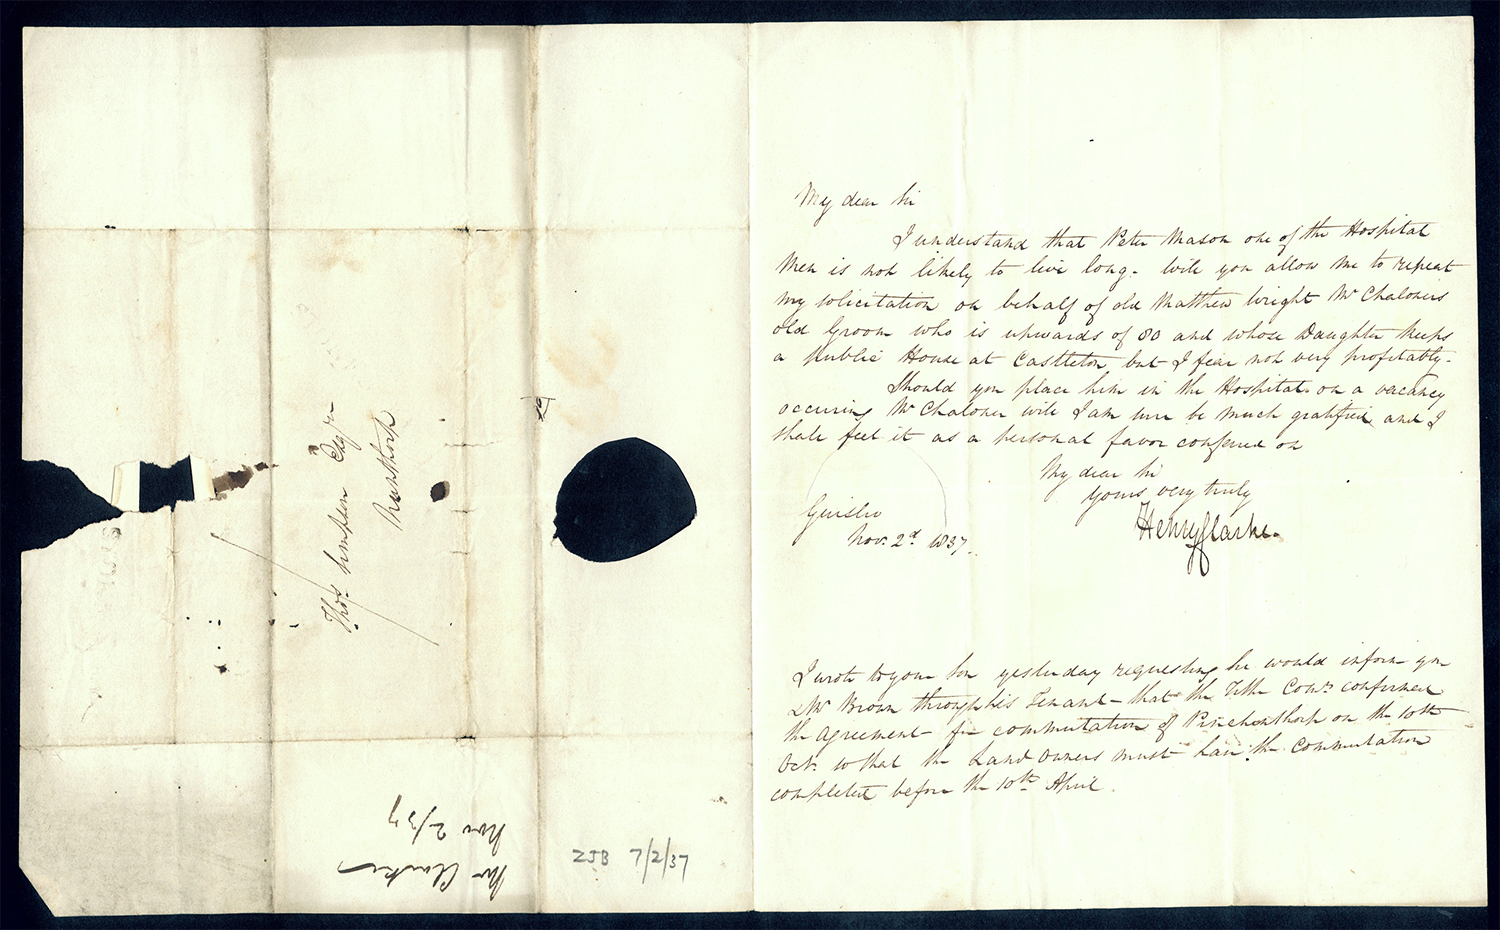 My dear Sir
I understand that Peter Mason one of the Hospital
Men is not likely to live long. Will you allow me to repeat
my solicitation on behalf of old Matthew Wright Mr Chaloners
old Groom who is upwards of 80 and whose Daughter keeps
a public House at Castleton but I fear not very profitably.
Should you place him in the Hospital on a vacancy
occuring Mr Chaloner will I am sure be much gratified and I
shall feel it as a personal favor conferred on
My dear Sir
Yours very truly
Henry Clarke.
Guisbro
Nov. 2d 1837.
I wrote to your Son yesterday requesting he would inform you
& Mr Brown through his Tenant that the Tithe Comrs confirmed
the agreement for commutation of Pinchinthorp on the 10th
Oct. so that the Land Owners must have the commutation
completed before the 10th April.
Thos. Simpson Esqre
Nunthorp
Mr Clarke
Nov 2/37
ZJB 7/2/37